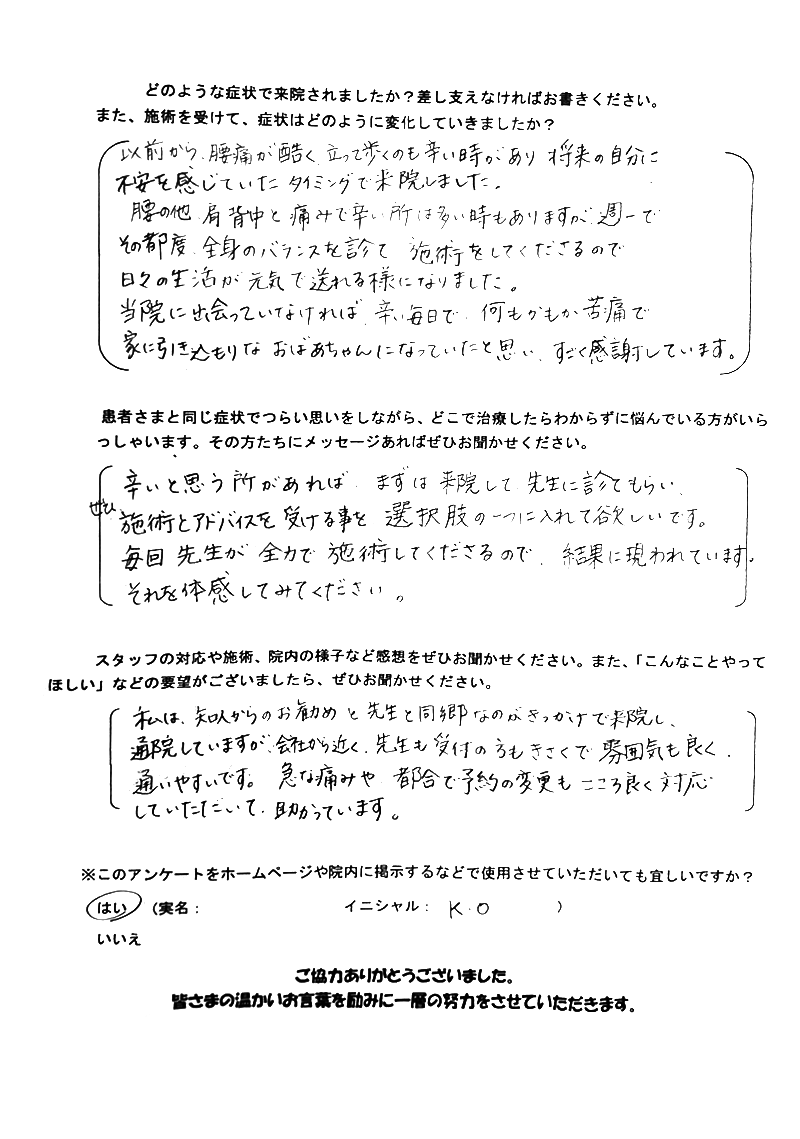 どのような症状で来院されましたか？差し支えなければお書きください。
また、施術を受けて、症状はどのように変化していきましたか？
以前から、腰痛が酷く、立って歩くのも辛い時があり 将来の自分に
不安を感じていた タイミングで来院しました。
腰の他、肩背中と痛みで辛い所は多い時もありますが、週一で
その都度、全身のバランスを診て 施術をしてくださるので
日々の生活が元気で送れる様になりました。
当院に出会っていなければ、辛い毎日で、何もかもか苦痛で
家に引き込もりな おばあちゃんになっていたと思い、すごく感謝しています。
患者さまと同じ症状でつらい思いをしながら、どこで治療したらわからずに悩んでいる方がいら
っしゃいます。その方たちにメッセージあればぜひお聞かせください。
辛いと思う所があれば、まずは来院して、先生に診てもらい、
ぜひ 施術とアドバイスを受ける事を 選択肢の一つに入れて欲しいです。
毎回 先生が 全力で 施術してくださるので、結果に現われています。
それを体感してみてください。
スタッフの対応や施術、院内の様子など感想をぜひお聞かせください。また、「こんなことやって
ほしい」などの要望がございましたら、ぜひお聞かせください。
私は、知人からのお勧めと先生と同郷なのがきっかけで来院し、
通院していますが、会社から近く、先生も受付の方もきさくで 雰囲気も良く、
通いやすいです。 急な痛みや 都合で予約の変更も こころ良く対応
していただいて、助かっています。
※このアンケートをホームページや院内に掲示するなどで使用させていただいても宜しいですか？
はい （実名： イニシャル： K.O ）
いいえ
ご協力ありがとうございました。
皆さまの温かいお言葉を励みに一層の努力をさせていただきます。